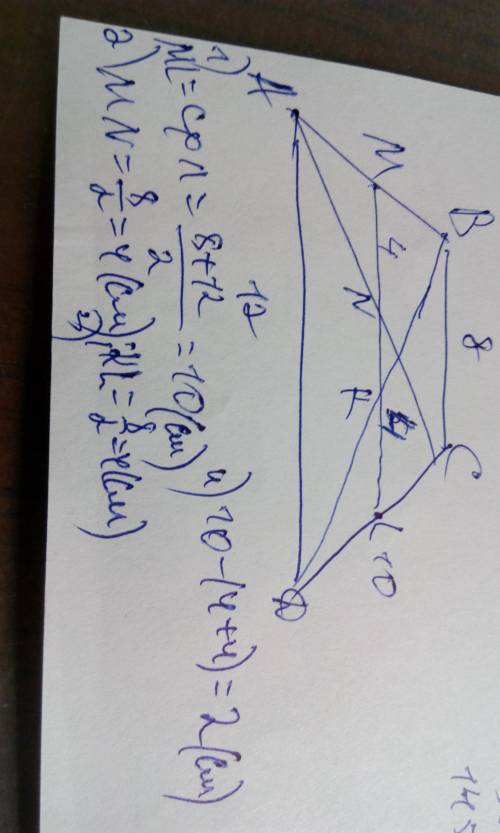 B 8 C
M 4 N K 4 L 10
A D
12
1) ML =ср л = 8+12/2 = 10 (см) 4) 10-(4+4) = 2 (см)
2) MN = 8/2 = 4 (см); 3) KL = 8/2 = 4 (см)